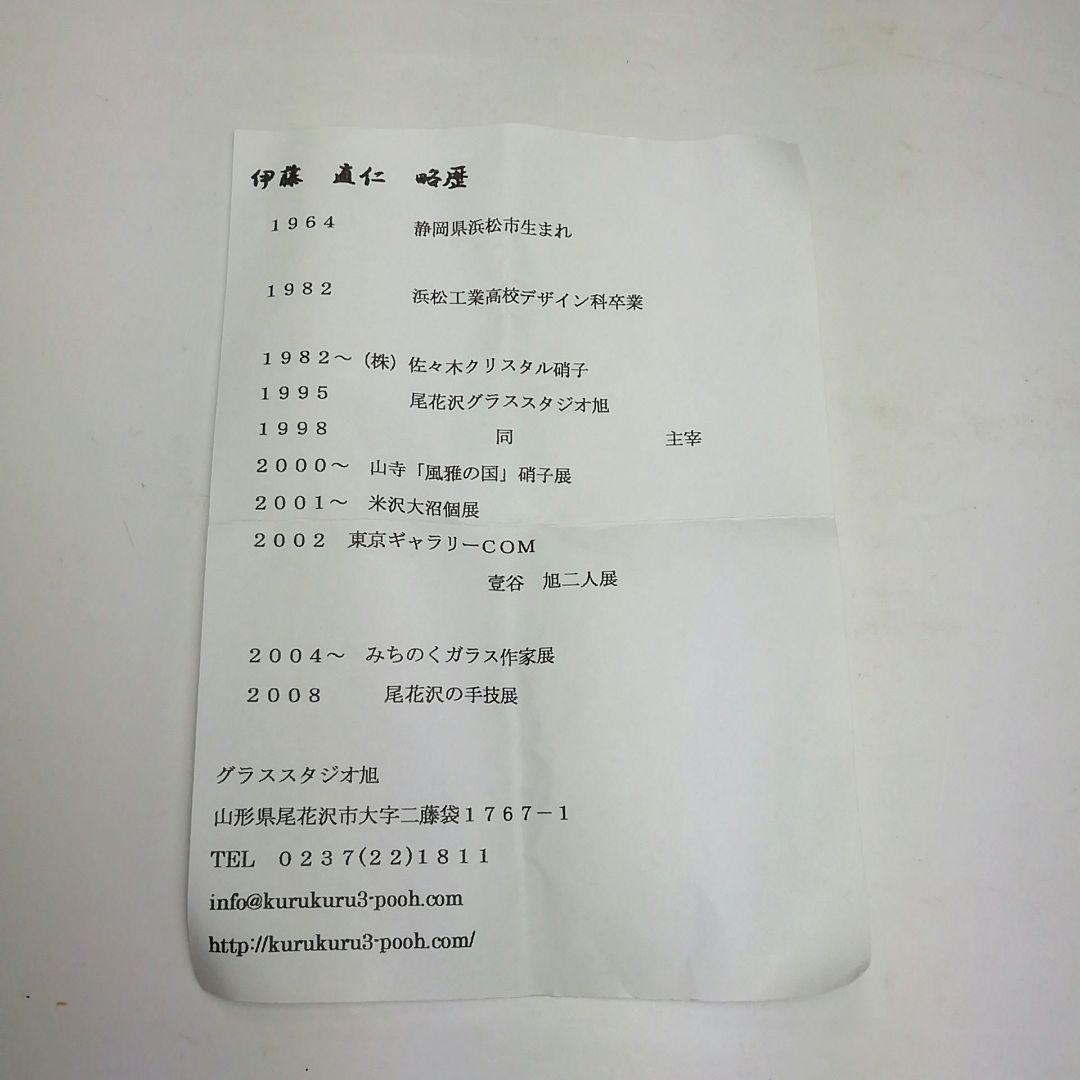 伊藤　直仁　略歴
１９６４　静岡県浜松市生まれ
１９８２　浜松工業高校デザイン科卒業
１９８２～（株）佐々木クリスタル硝子
１９９５　尾花沢グラススタジオ旭
１９９８　同　主宰
２０００～　山寺「風雅の国」硝子展
２００１～　米沢大沼個展
２００２　東京ギャラリーＣＯＭ
壹谷　旭二人展
２００４～　みちのくガラス作家展
２００８　尾花沢の手技展
グラススタジオ旭
山形県尾花沢市大字二藤袋１７６７－１
TEL　０２３７(２２)１８１１
info@kurukuru3-pooh.com
http://kurukuru3-pooh.com/